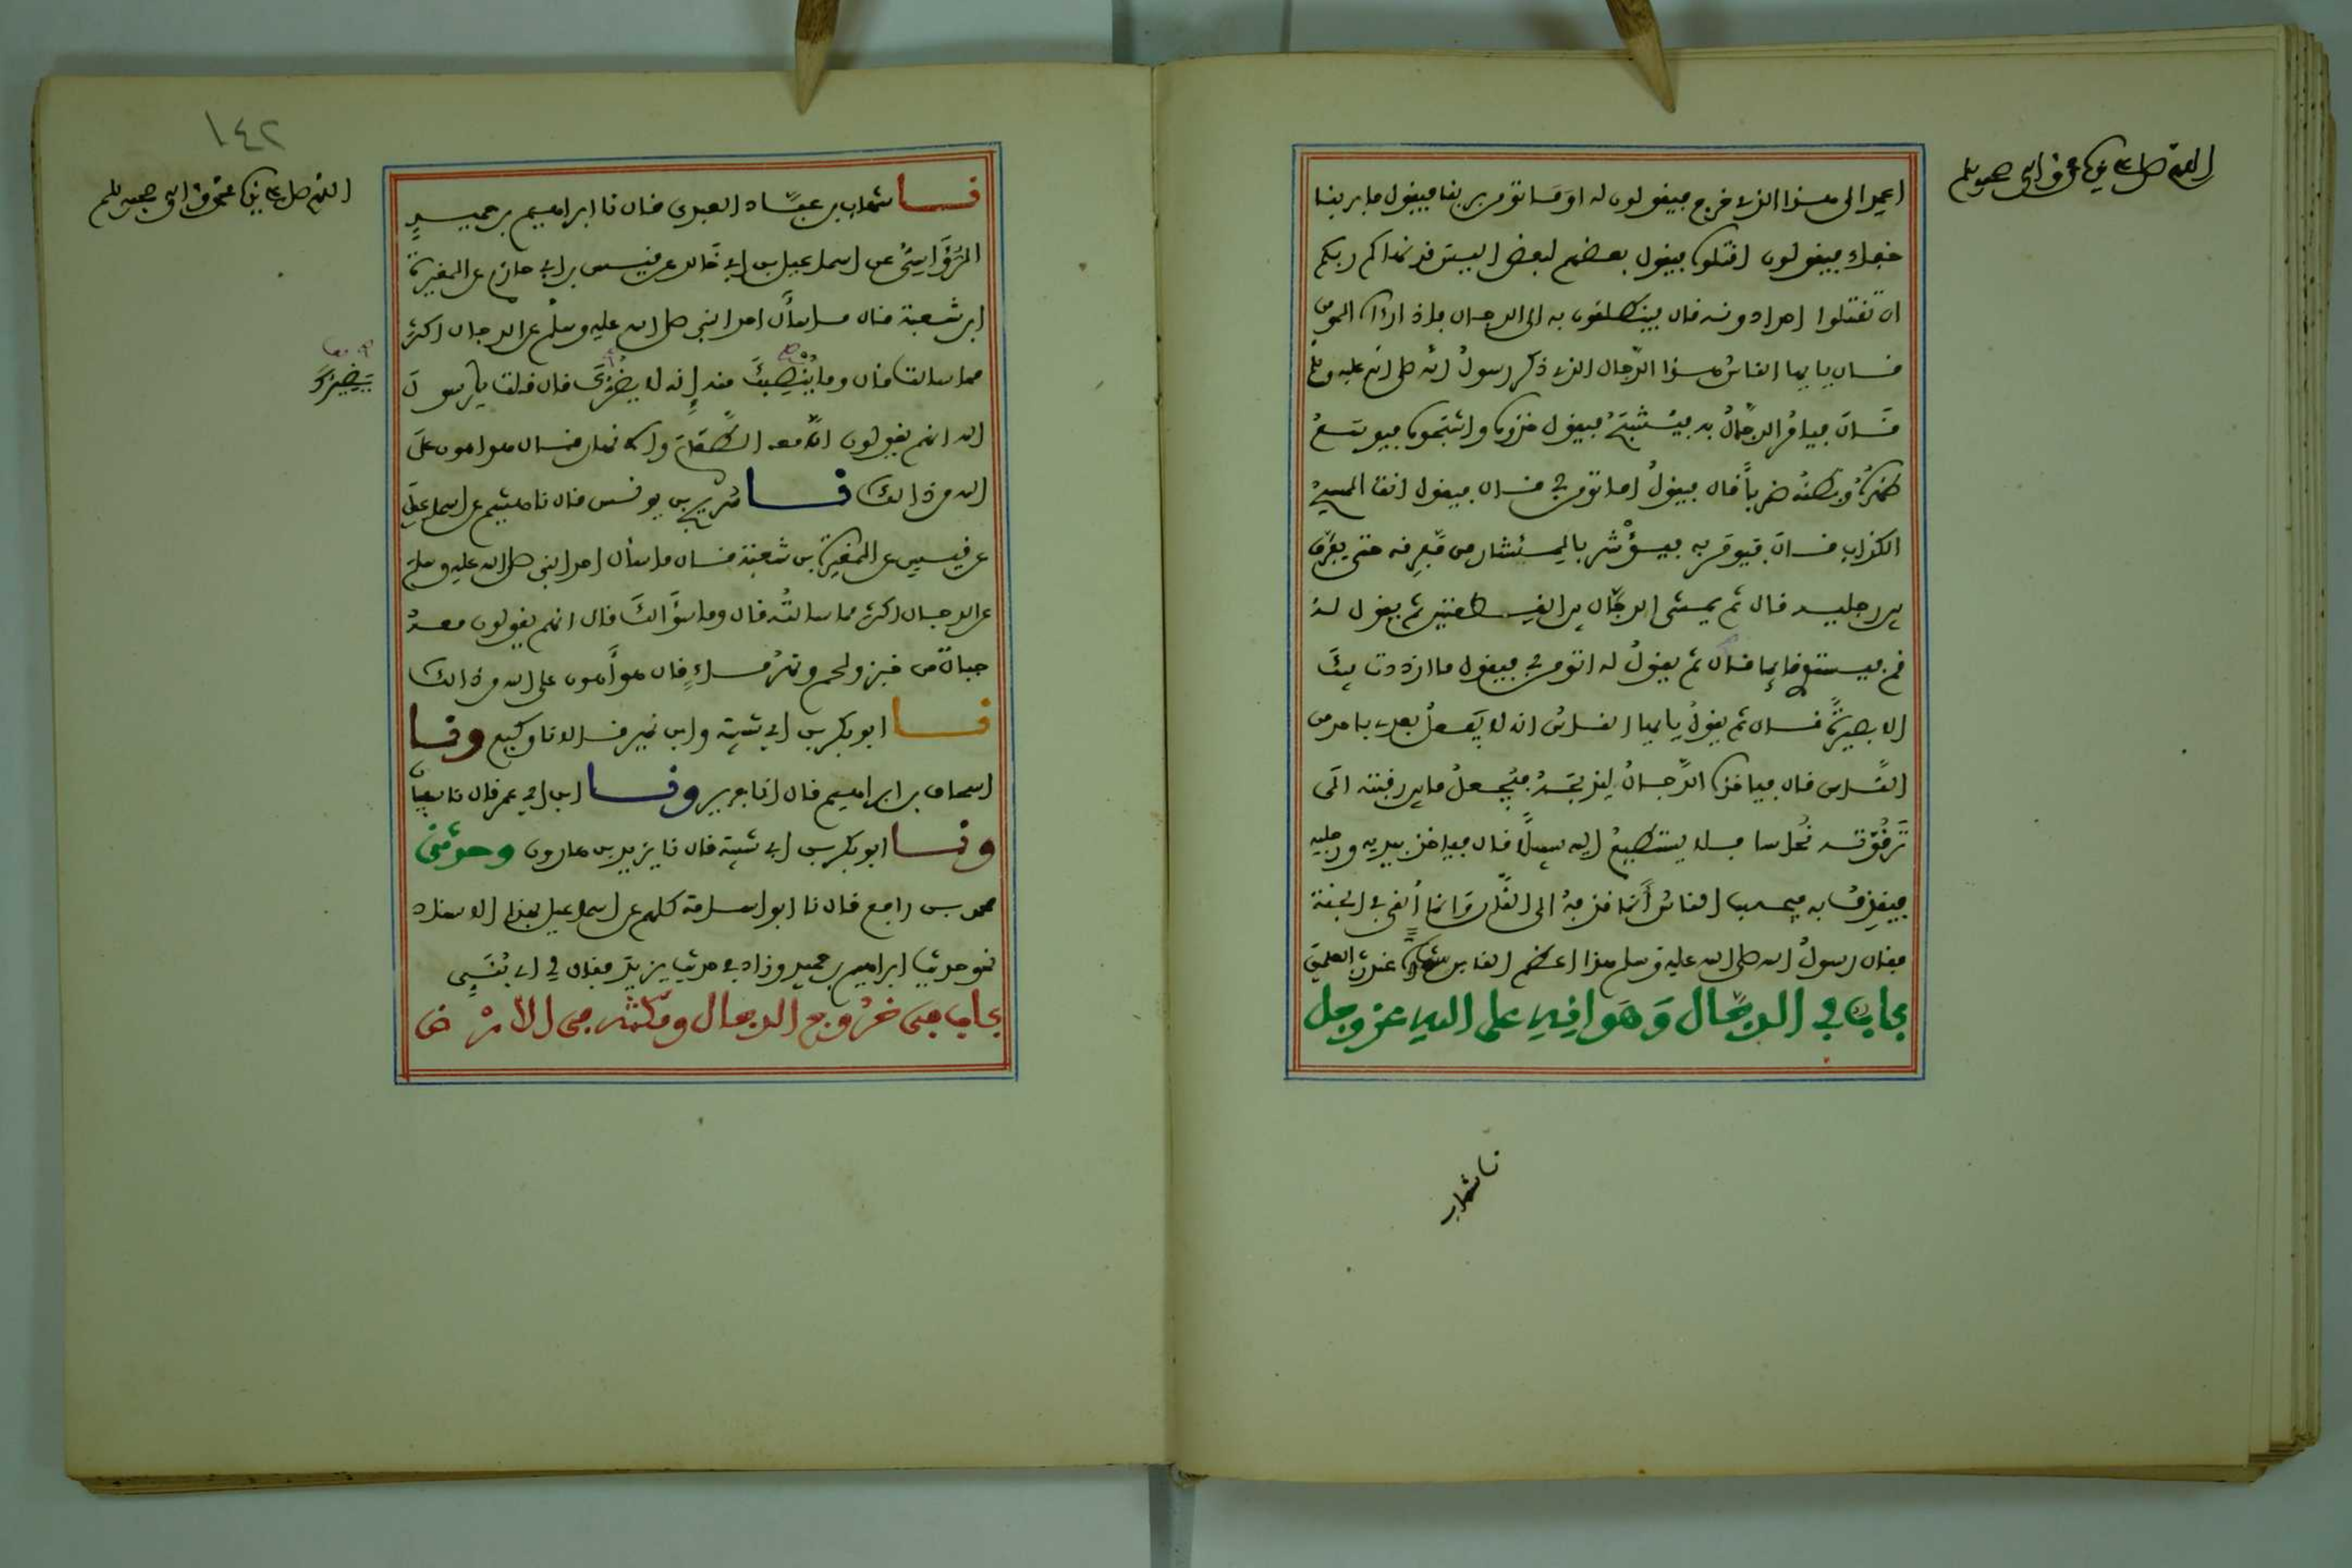 اللهم صل على نبيك محمد وآله وصحبه وسلم
اعمد الى هذا الذي خرج فيقولون له او ما تومن بربنا فيقول ما بربنا
خفاء فيقولون اقتلوه فيقول بعضهم لبعض اليس قد نهاكم ربكم
ان تقتلوا احدا دونه قال فينطلقون به الى الدجال فاذا رءاه المومن
قال يا ايها الناس هذا الدجال الذي ذكر رسول الله صلى الله عليه وسلم
قال فيامر الدجال به فيشبح فيقول خذوه واشبحوه فيوسع
ظهره وبطنه ضربا قال فيقول اما تومن بي قال فيقول انت المسيح
الكذاب قال فيومر به فيؤشر بالميشار من مفرقه حتى يفرق
بين رجليه قال ثم يمشي الدجال بين القطعتين ثم يقول له
قم فيستوي قايما قال ثم يقول له اتومن بي فيقول ما ازددت فيك
الا بصيرة قال ثم يقول يا ايها الناس انه لا يفعل بعدي باحد من
الناس قال فياخذه الدجال ليذبحه فيجعل ما بين رقبته الى
ترقوته نحاسا فلا يستطيع اليه سبيلا قال فياخذ بيديه ورجليه
فيقذف به فيحسب الناس انما قذفه الى النار وانما ألقي في الجنة
فقال رسول الله صلى الله عليه وسلم هذا اعظم الناس شهادة عند رب العلمين
باب في الدجال وهو اهون على الله عز وجل
نا شهاب
١٤٢
اللهم صل على نبيك محمد وآله وصحبه وسلم
نا شهاب بن عباد العبدي قال نا ابراهيم بن حميد
الرؤاسي عن اسماعيل بن ابي خالد عن قيس بن ابي حازم عن المغيرة
ابن شعبة قال ما سأل احد النبي صلى الله عليه وسلم عن الدجال اكثر
مما سالت قال وما ينصبك منه إنه لا يضرك قال قلت يا رسول
الله انهم يقولون ان معه الطعام والانهار قال هو اهون على
الله من ذالك نا سريج بن يونس قال نا هشيم عن اسماعيل
عن قيس عن المغيرة بن شعبة قال ما سأل احد النبي صلى الله عليه وسلم
عن الدجال اكثر مما سالته قال وما سؤالك قال انهم يقولون معه
جبال من خبز ولحم ونهر ماء قال هو أهون على الله من ذالك
نا ابو بكر بن ابي شيبة وابن نمير قالا نا وكيع ونا
اسحاق بن ابراهيم قال انا جرير ونا ابن ابي عمر قال نا سفيان
ونا ابو بكر بن ابي شيبة قال نا يزيد بن هارون وحدثني
محمد بن رافع قال نا ابو اسامة كلهم عن اسماعيل بهذا الاسناد
نحو حديث ابراهيم بن حميد وزاد في حديث يزيد فقال لي اي بني
باب في خروج الدجال ومكثه في الارض